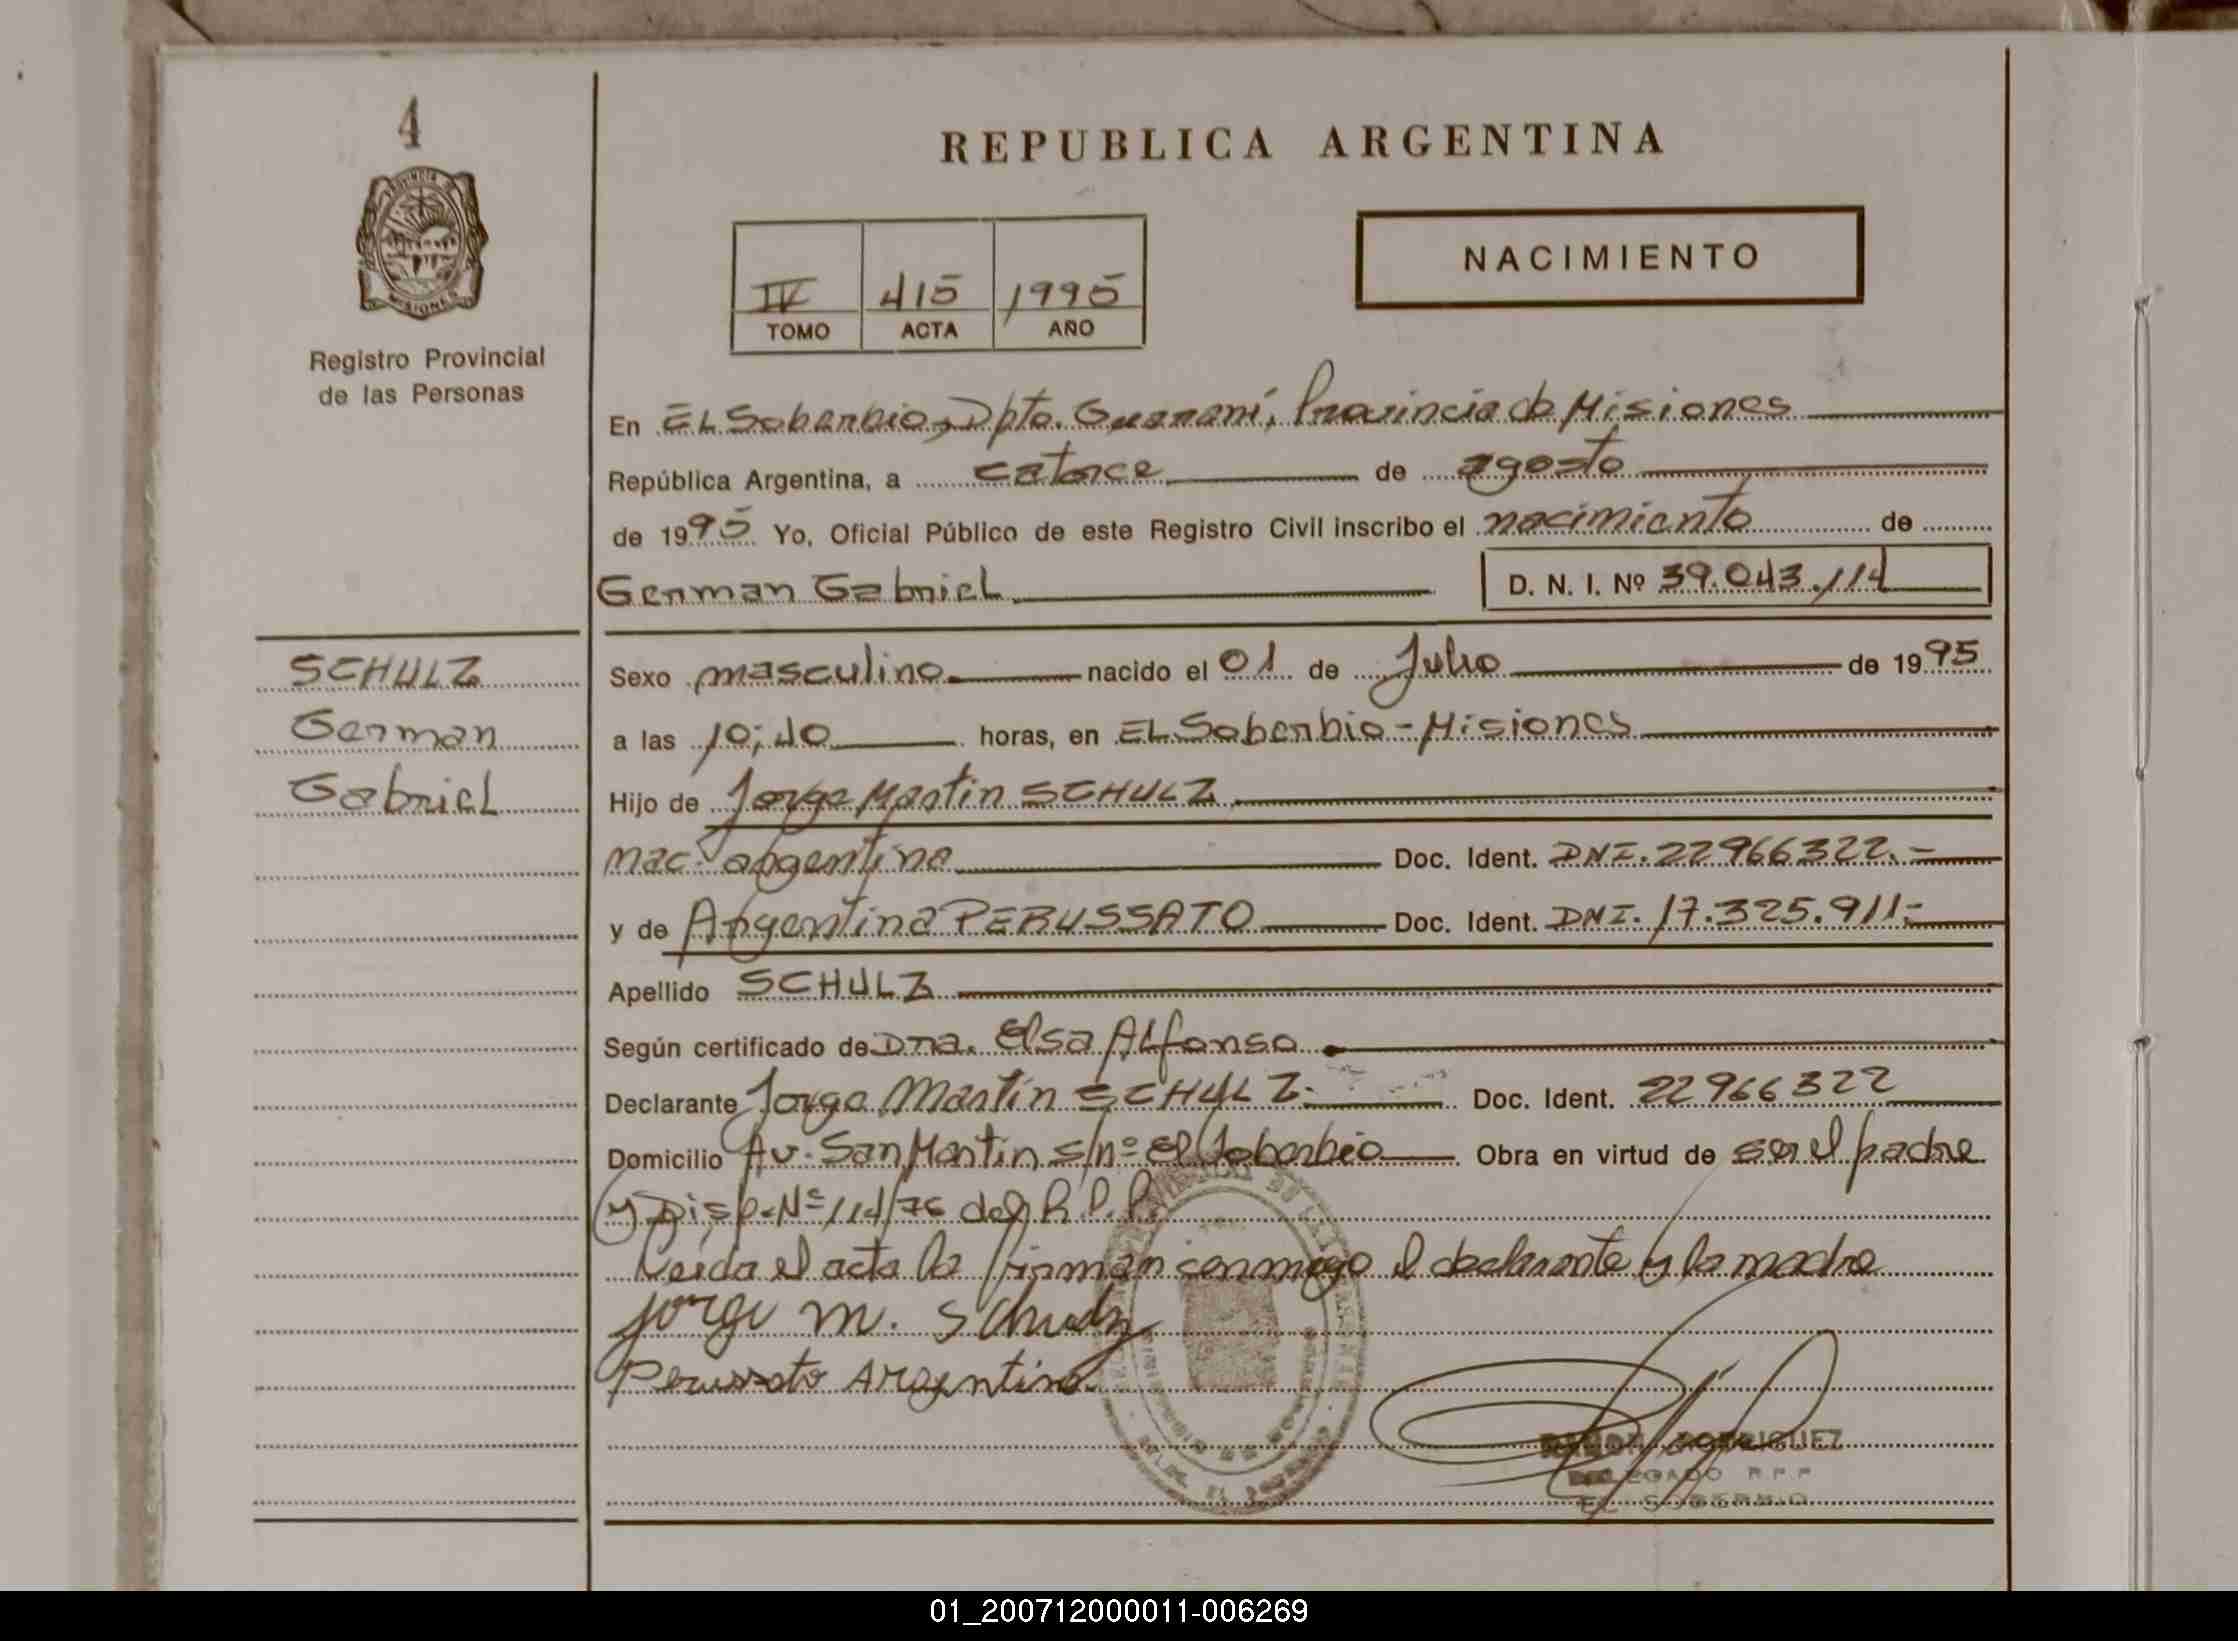 4
REPUBLICA ARGENTINA
NACIMIENTO
IV 415 1995
TOMO ACTA AÑO
PROVINCIA DE MISIONES
Registro Provincial
de las Personas
En EL Soberbio, Dpto. Guaraní, Provincia de Misiones
República Argentina, a catorce de agosto
de 1995 Yo, Oficial Público de este Registro Civil inscribo el nacimiento de
German Gabriel D. N. I. Nº 39.043.114
SCHULZ
German
Gabriel
Sexo masculino nacido el 01 de Julio de 1995
a las 10:40 horas, en EL Soberbio - Misiones
Hijo de Jorge Martin SCHULZ
nac. argentina Doc. Ident. DNI. 22966322.-
y de Argentina PERUSSATO Doc. Ident. DNI. 17.325.911.-
Apellido SCHULZ
Según certificado de Dra. Elsa Alfonso
Declarante Jorge Martin SCHULZ.- Doc. Ident. 22966322
Domicilio Av. San Martin s/nº El Soberbio Obra en virtud de ser el padre
y Disp. Nº 114/76 del R.P.P.
Leída el acta la firman conmigo el declarante y la madre
Jorge M. Schulz
Perussato Argentina.
RAMON RODRIGUEZ
DELEGADO R.P.P
EL SOBERBIO
01_200712000011-006269